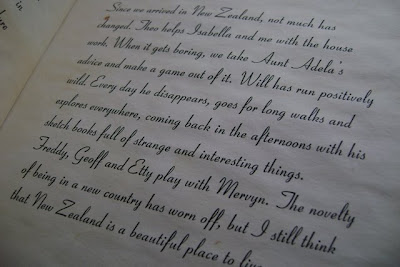 Since we arrived in New Zealand, not much has
changed. Theo helps Isabella and me with the house
work. When it gets boring, we take Aunt Adela's
advice and make a game out of it. Will has run positively
wild. Every day he disappears, goes for long walks and
explores everywhere, coming back in the afternoons with his
sketch books full of strange and interesting things.
Freddy, Geoff and Etty play with Mervyn. The novelty
of being in a new country has worn off, but I still think
that New Zealand is a beautiful place to